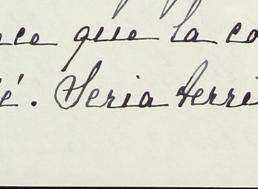 nce que la co
é. Seria terri